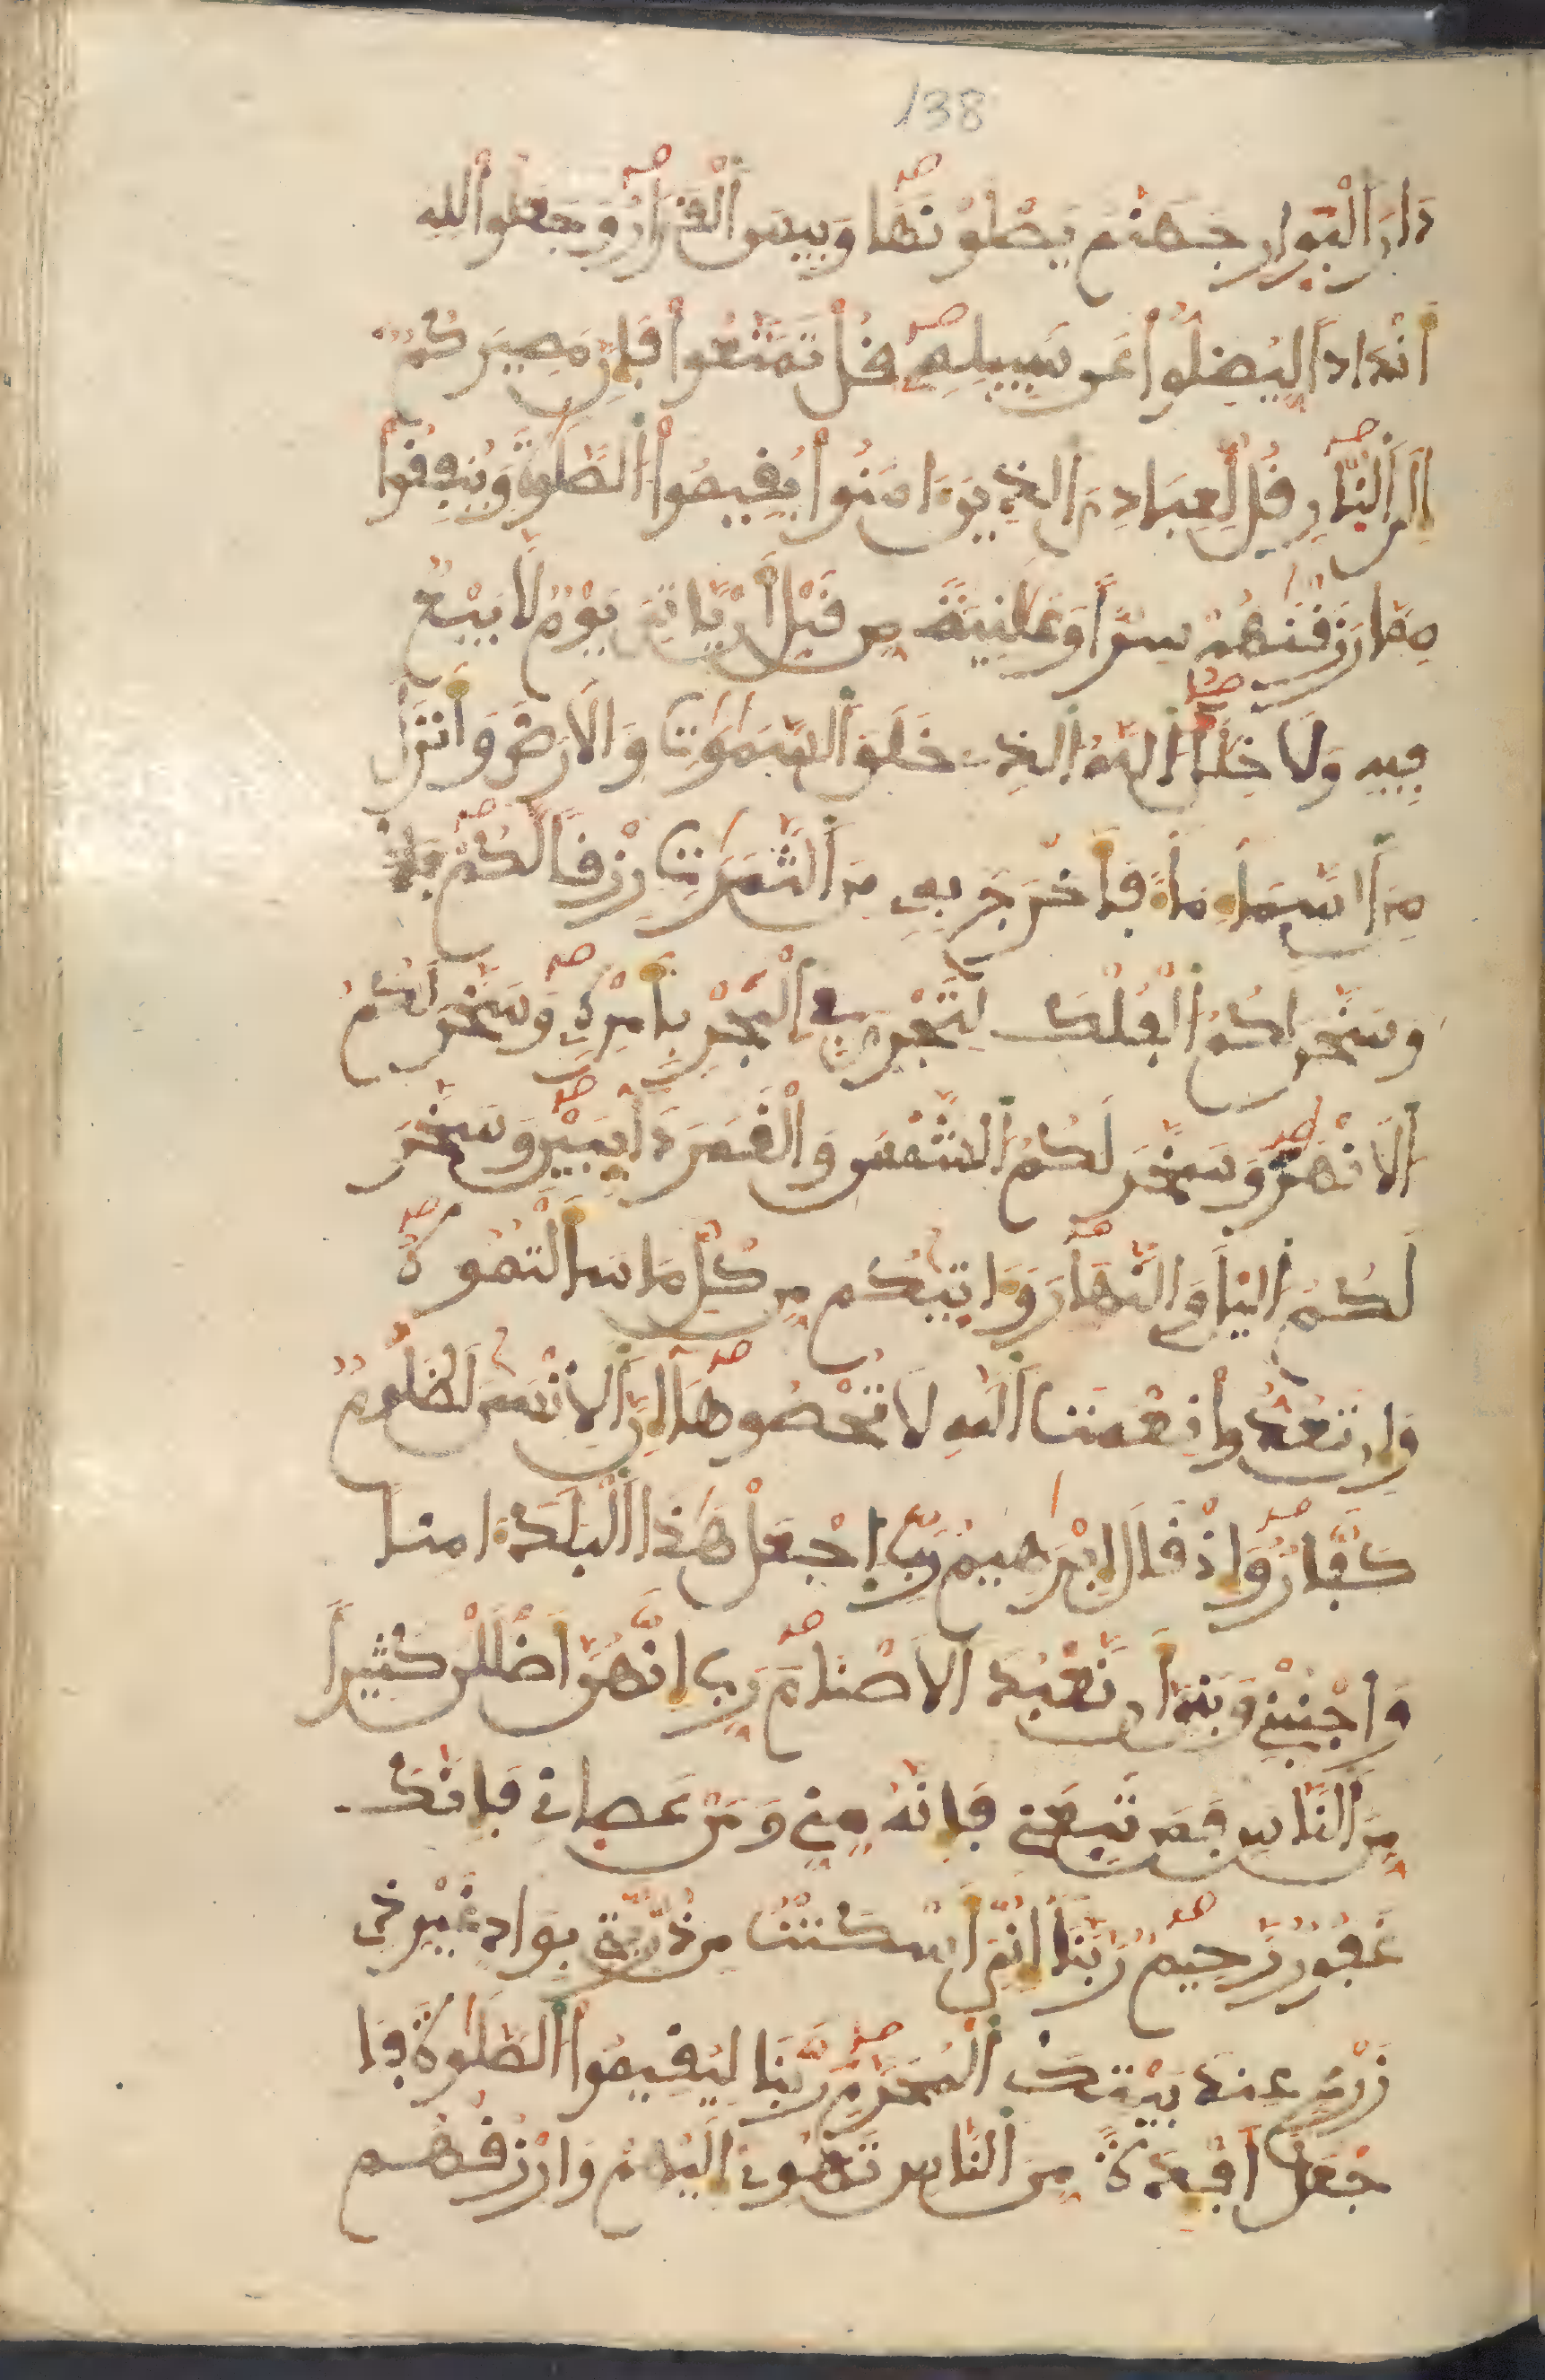 138
دَارَ اَ۬لْبَوارِ جَهَنَّمَ يَصْلَوْنَهَا وَبِيسَ اَ۬لْقَرَارُ وَجَعَلُواْ لِلهِ
أَندَاداٗ لِّيُضِلُّواْ عَن سَبِيلِهِۦ قُلْ تَمَتَّعُواْ فَإِنَّ مَصِيرَكُمُ
إِلَى اَ۬لنّارِ قُل لِّعِبَادِيَ اَ۬لذِينَ ءَامَنُواْ يُقِيمُواْ اُ۬لصَّلَوٰةَ وَيُنفِقُواْ
مِمَّا رَزَقْنَٰهُمْ سِرّاٗ وَعَلَٰنِيَةٗ مِّن قَبْلِ أَنْ يَّاتِيَ يَوْمٞ لَّا بَيْعٞ
فِيهِ وَلَا خِلَٰلٌ اَ۬للَّهُ اُ۬لذِے خَلَقَ اَ۬لسَّمَٰوَٰتِ وَالَارْضَ وَأَنزَلَ
مِنَ اَ۬لسَّمَاءِ مَاءٗ فَأَخْرَجَ بِهِۦ مِنَ اَ۬لثَّمَرَٰتِ رِزْقاٗ لَّكُمْ بإذ
وَسَخَّرَ لَكُمُ اُ۬لْفُلْكَ لِتَجْرِيَ فِے اِ۬لْبَحْرِ بِأَمْرِهِۦ وَسَخَّرَ لَكُمُ
اُ۬لَانْهَٰرَ وَسَخَّرَ لَكُمُ اُ۬لشَّمْسَ وَالْقَمَرَ دَائِبَيْنِ وَسَخَّرَ
لَكُمُ اُ۬ليْلَ وَالنَّهَارَ وَءَاتَيٰكُم مِّن كُلِّ مَا سَأَلْتُمُوهُ
وَإِن تَعُدُّواْ نِعْمَتَ اَ۬للَّهِ لَا تُحْصُوهَا إِنَّ اَ۬لِانسَٰنَ لَظَلُومٞ
كَفَّارٞ وَإِذْ قَالَ إِبْرَٰهِيمُ رَبِّ اِ۪جْعَلْ هَٰذَا اَ۬لْبَلَدَ ءَامِناٗ
وَاجْنُبْنِے وَبَنِيَّ أَن نَّعْبُدَ اَ۬لَاصْنَامَ رَبِّ إِنَّهُنَّ أَضْلَلْنَ كَثِيراٗ
مِّنَ اَ۬لنَّاسِ فَمَن تَبِعَنِے فَإِنَّهُۥ مِنِّے وَمَنْ عَصَانِے فَإِنَّكَ
غَفُورٞ رَّحِيمٞ رَّبَّنَا إِنِّيَ أَسْكَنتُ مِن ذُرِّيَّتِے بِوَادٍ غَيْرِ ذِے
زَرْعٍ عِندَ بَيْتِكَ اَ۬لْمُحَرَّمِ رَبَّنَا لِيُقِيمُواْ اُ۬لصَّلَوٰةَ فَا
جْعَلَ اَفْـِٕدَةٗ مِّنَ اَ۬لنَّاسِ تَهْوِے إِلَيْهِمْ وَارْزُقْهُم